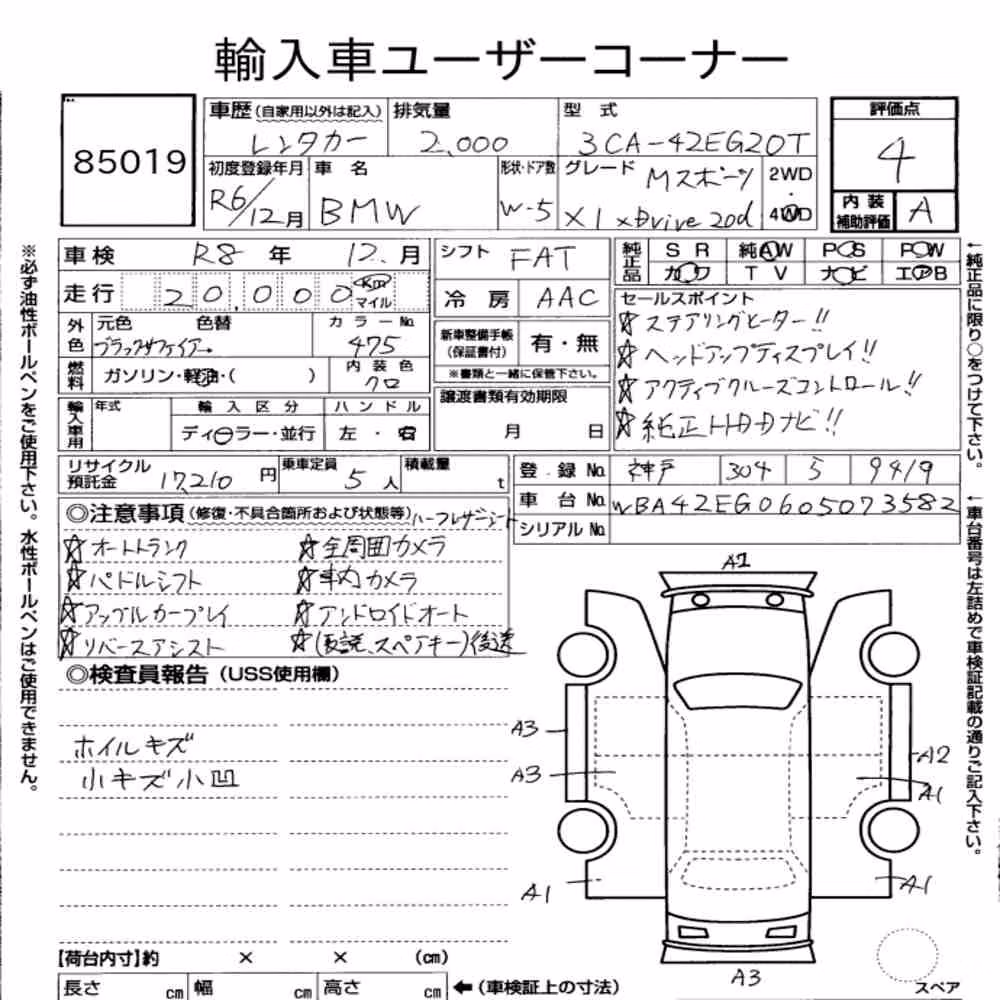 輸入車ユーザーコーナー
85019
車歴(自家用以外は記入)
レンタカー
排気量
2,000
型 式
3CA-42EG20T
評価点
4
初度登録年月
R6/12月
車 名
BMW
形状・ドア数
W-5
グレード
Mスポーツ
X1 xDrive 20d
2WD
4WD
内装
補助評価
A
車検 R8年 12.月
シフト FAT
純正品
SR 純AW PS PW
カワ TV ナビ エアB
走行 20,000 Km マイル
冷房 AAC
セールスポイント
☆ステアリングヒーター!!
☆ヘッドアップディスプレイ!!
☆アクティブクルーズコントロール!!
☆純正HDDナビ!!
外色
元色 色替
ブラックサファイアー
カラーNo.
475
新車整備手帳
(保証書付)
有・無
※書類と一緒に保管下さい。
燃料
ガソリン・軽油・( )
内装色
クロ
譲渡書類有効期限
月 日
輸入車用
年式
輸入区分
ディーラー・並行
ハンドル
左・右
リサイクル
預託金
17,210円
乗車定員
5人
積載量
t
登録No. 神戸 304 9419
車台No. WBA42EG0605073582
シリアルNo.
◎注意事項(修復・不具合箇所および状態等)ハーフレザーシート
☆オートトランク ☆全周囲カメラ
☆パドルシフト ☆車内カメラ
☆アップルカープレイ ☆アンドロイドオート
☆リバースアシスト ☆(取説、スペアキー)後送
◎検査員報告(USS使用欄)
ホイルキズ
小キズ小凹
A1
A3
A3
A1
A2
A1
A1
A3
スペア
【荷台内寸】約 × × (cm)
長さ cm 幅 cm 高さ cm ←(車検証上の寸法)
※必ず油性ボールペンをご使用下さい。水性ボールペンはご使用できません。
←純正品に限り○をつけて下さい。
←車台番号は左詰めで車検証記載の通りご記入下さい。